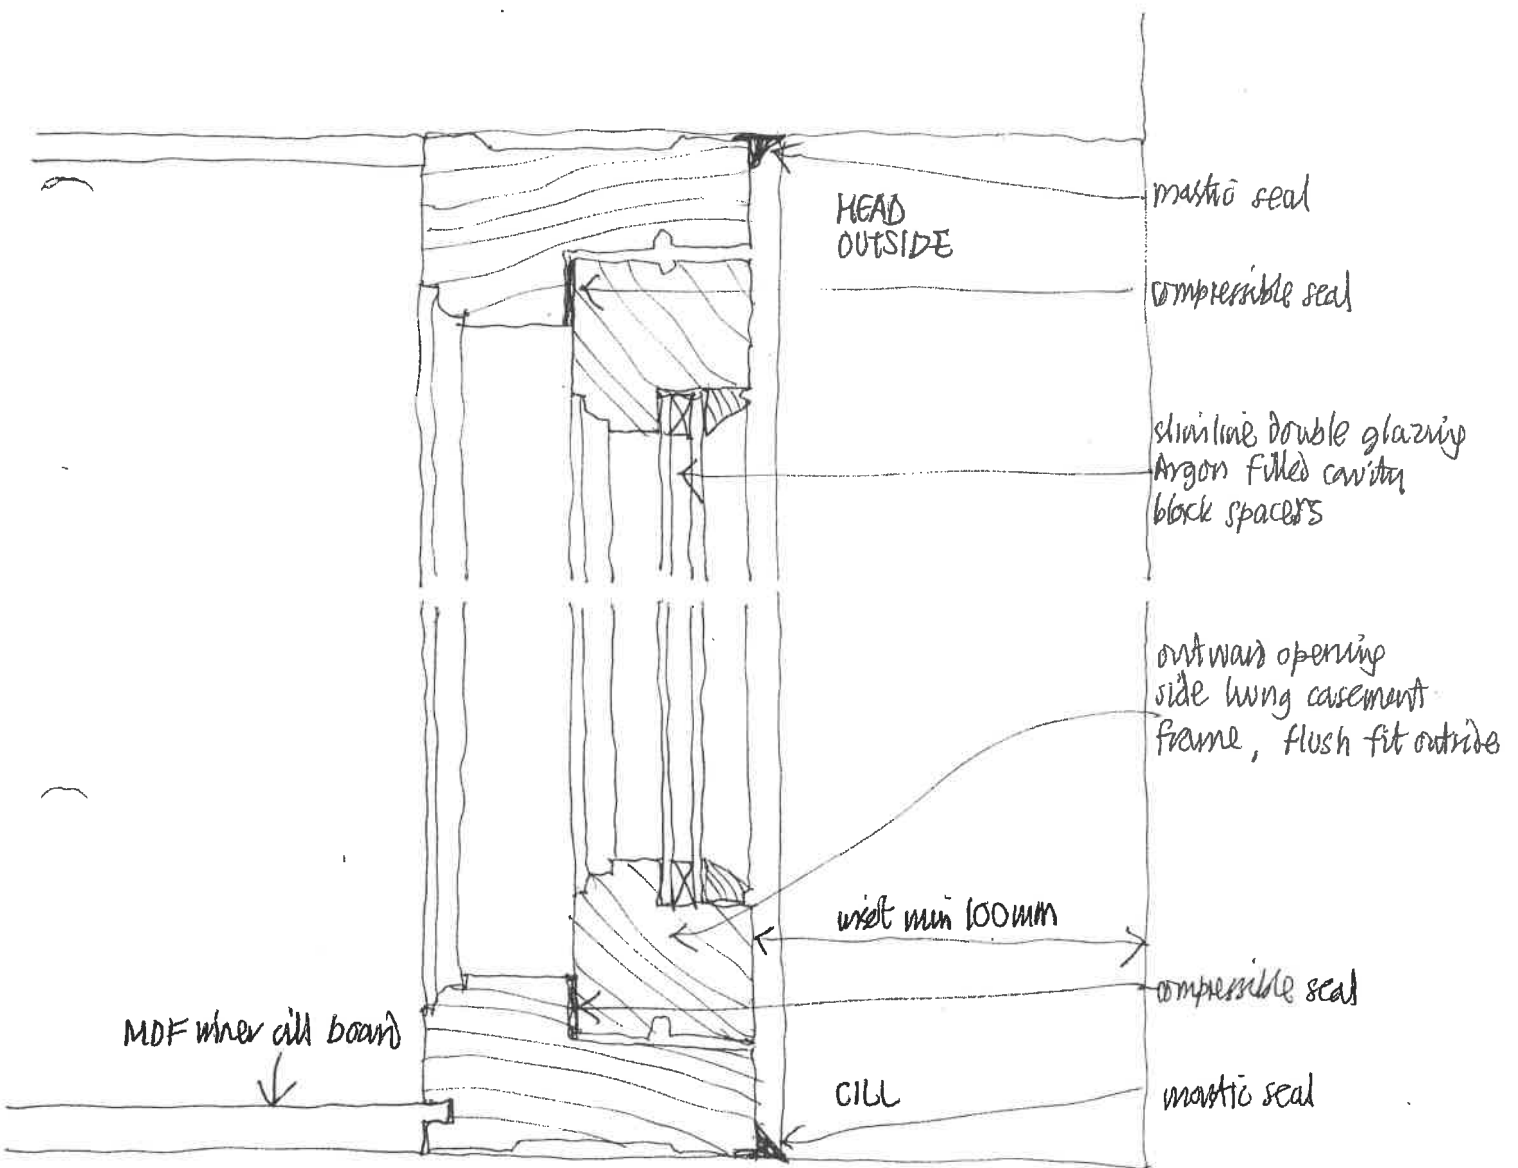 HEAD
OUTSIDE
mastic seal
compressible seal
slimline double glazing
Argon filled cavity
block spacers
outward opening
side hung casement
frame, flush fit outside
inset min 100mm
compressible seal
MDF inner cill board
CILL
mastic seal